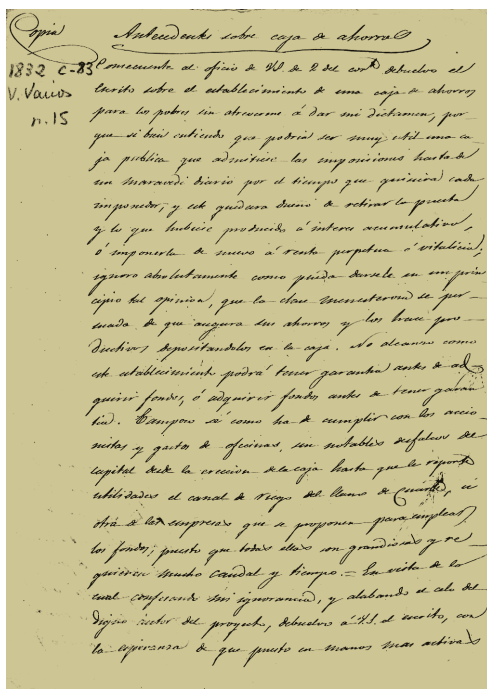 Copia
Antecedentes sobre caja de ahorros
1832 C-83
V. Varios
n. 15
Consecuente al oficio de V.S. de 2 del cor.te debuelvo el
escrito sobre el establecimiento de una caja de ahorros
para los pobres sin atreverme á dar mi dictamen, por-
que si bien entiendo que podria ser muy util una ca-
ja publica que admitiese las imposiciones hasta de
un maravedi diario por el tiempo que quisiera cada
imponedor; y este quedara dueño de retirar la puesta
y lo que hubiese producido á interes acumulativo,
ó imponerla de nuevo á renta perpetua ó vitalicia;
ignoro absolutamente como pueda darsele en un prin
cipio tal opinion, que la clase menesterosa se per-
suada de que asegura sus ahorros y los hace pro-
ductivos depositandolos en la caja. No alcanzo como
este establecimiento podrá tener garantia antes de ad-
quirir fondos, ó adquirir fondos antes de tener garan
tia. Tampoco sé como ha de cumplir con los accio-
nistas y gastos de oficinas, sin notables desfalcos del
capital desde la creccion de la caja hasta que le reporte
utilidades el canal de riego del llano de ú
otra de las empresas que se proponen para emplear
los fondos; puesto que todas ellas son grandiosas y re
quieren mucho caudal y tiempo. = En vista de lo
cual confesando mi ignorancia, y alabando el celo del
digno autor del proyecto, debuelvo á V.S. el escrito, con
la esperanza de que puesto en manos mas activas